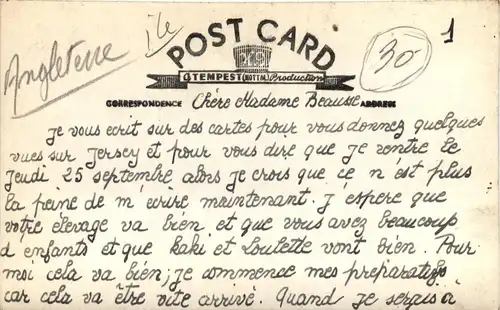 Angleterre
île
POST CARD
30
1
A TEMPEST (NOTTM) Production
CORRESPONDENCE Chère Madame Beausse ADDRESS
Je vous ecrit sur des cartes pour vous donnez quelques
vues sur Jersey et pour vous dire que je rentre le
Jeudi 25 septembre alors je crois que ce n'est plus
la peine de m'écrire maintenant. J'éspere que
votre élevage va bien et que vous avez beaucoup
d'enfants et que Kaki et Loulette vont bien. Pour
moi cela va bien; je commence mes preparatifs
car cela va être vite arrivé. Quand je serais à